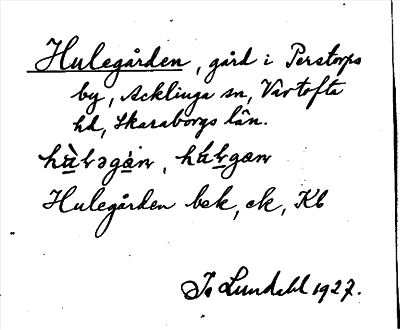 Hulegården, gård i Perstorps
by, Acklinga sn, Vartofta
hd, Skaraborgs län.
hùləgàn, húlgan
Hulegården bsk, ek, Kb
Lundahl 1927.